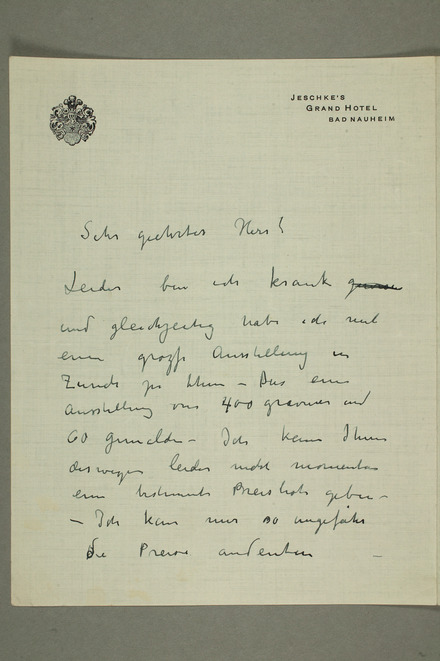 JESCHKE'S
GRAND HOTEL
BAD NAUHEIM
Sehr geehrter Herr!
Leider bin ich krank
und gleichzeitig habe ich mit
einer große Ausstellung in
Zürich zu thun – Das eine
Ausstellung von 400 gravures und
60 gemälden – Ich kann Ihnen
deswegen leider nicht momentan
eine Preisliste geben –
– Ich kann nur so ungefähr
die Preise andeuten –